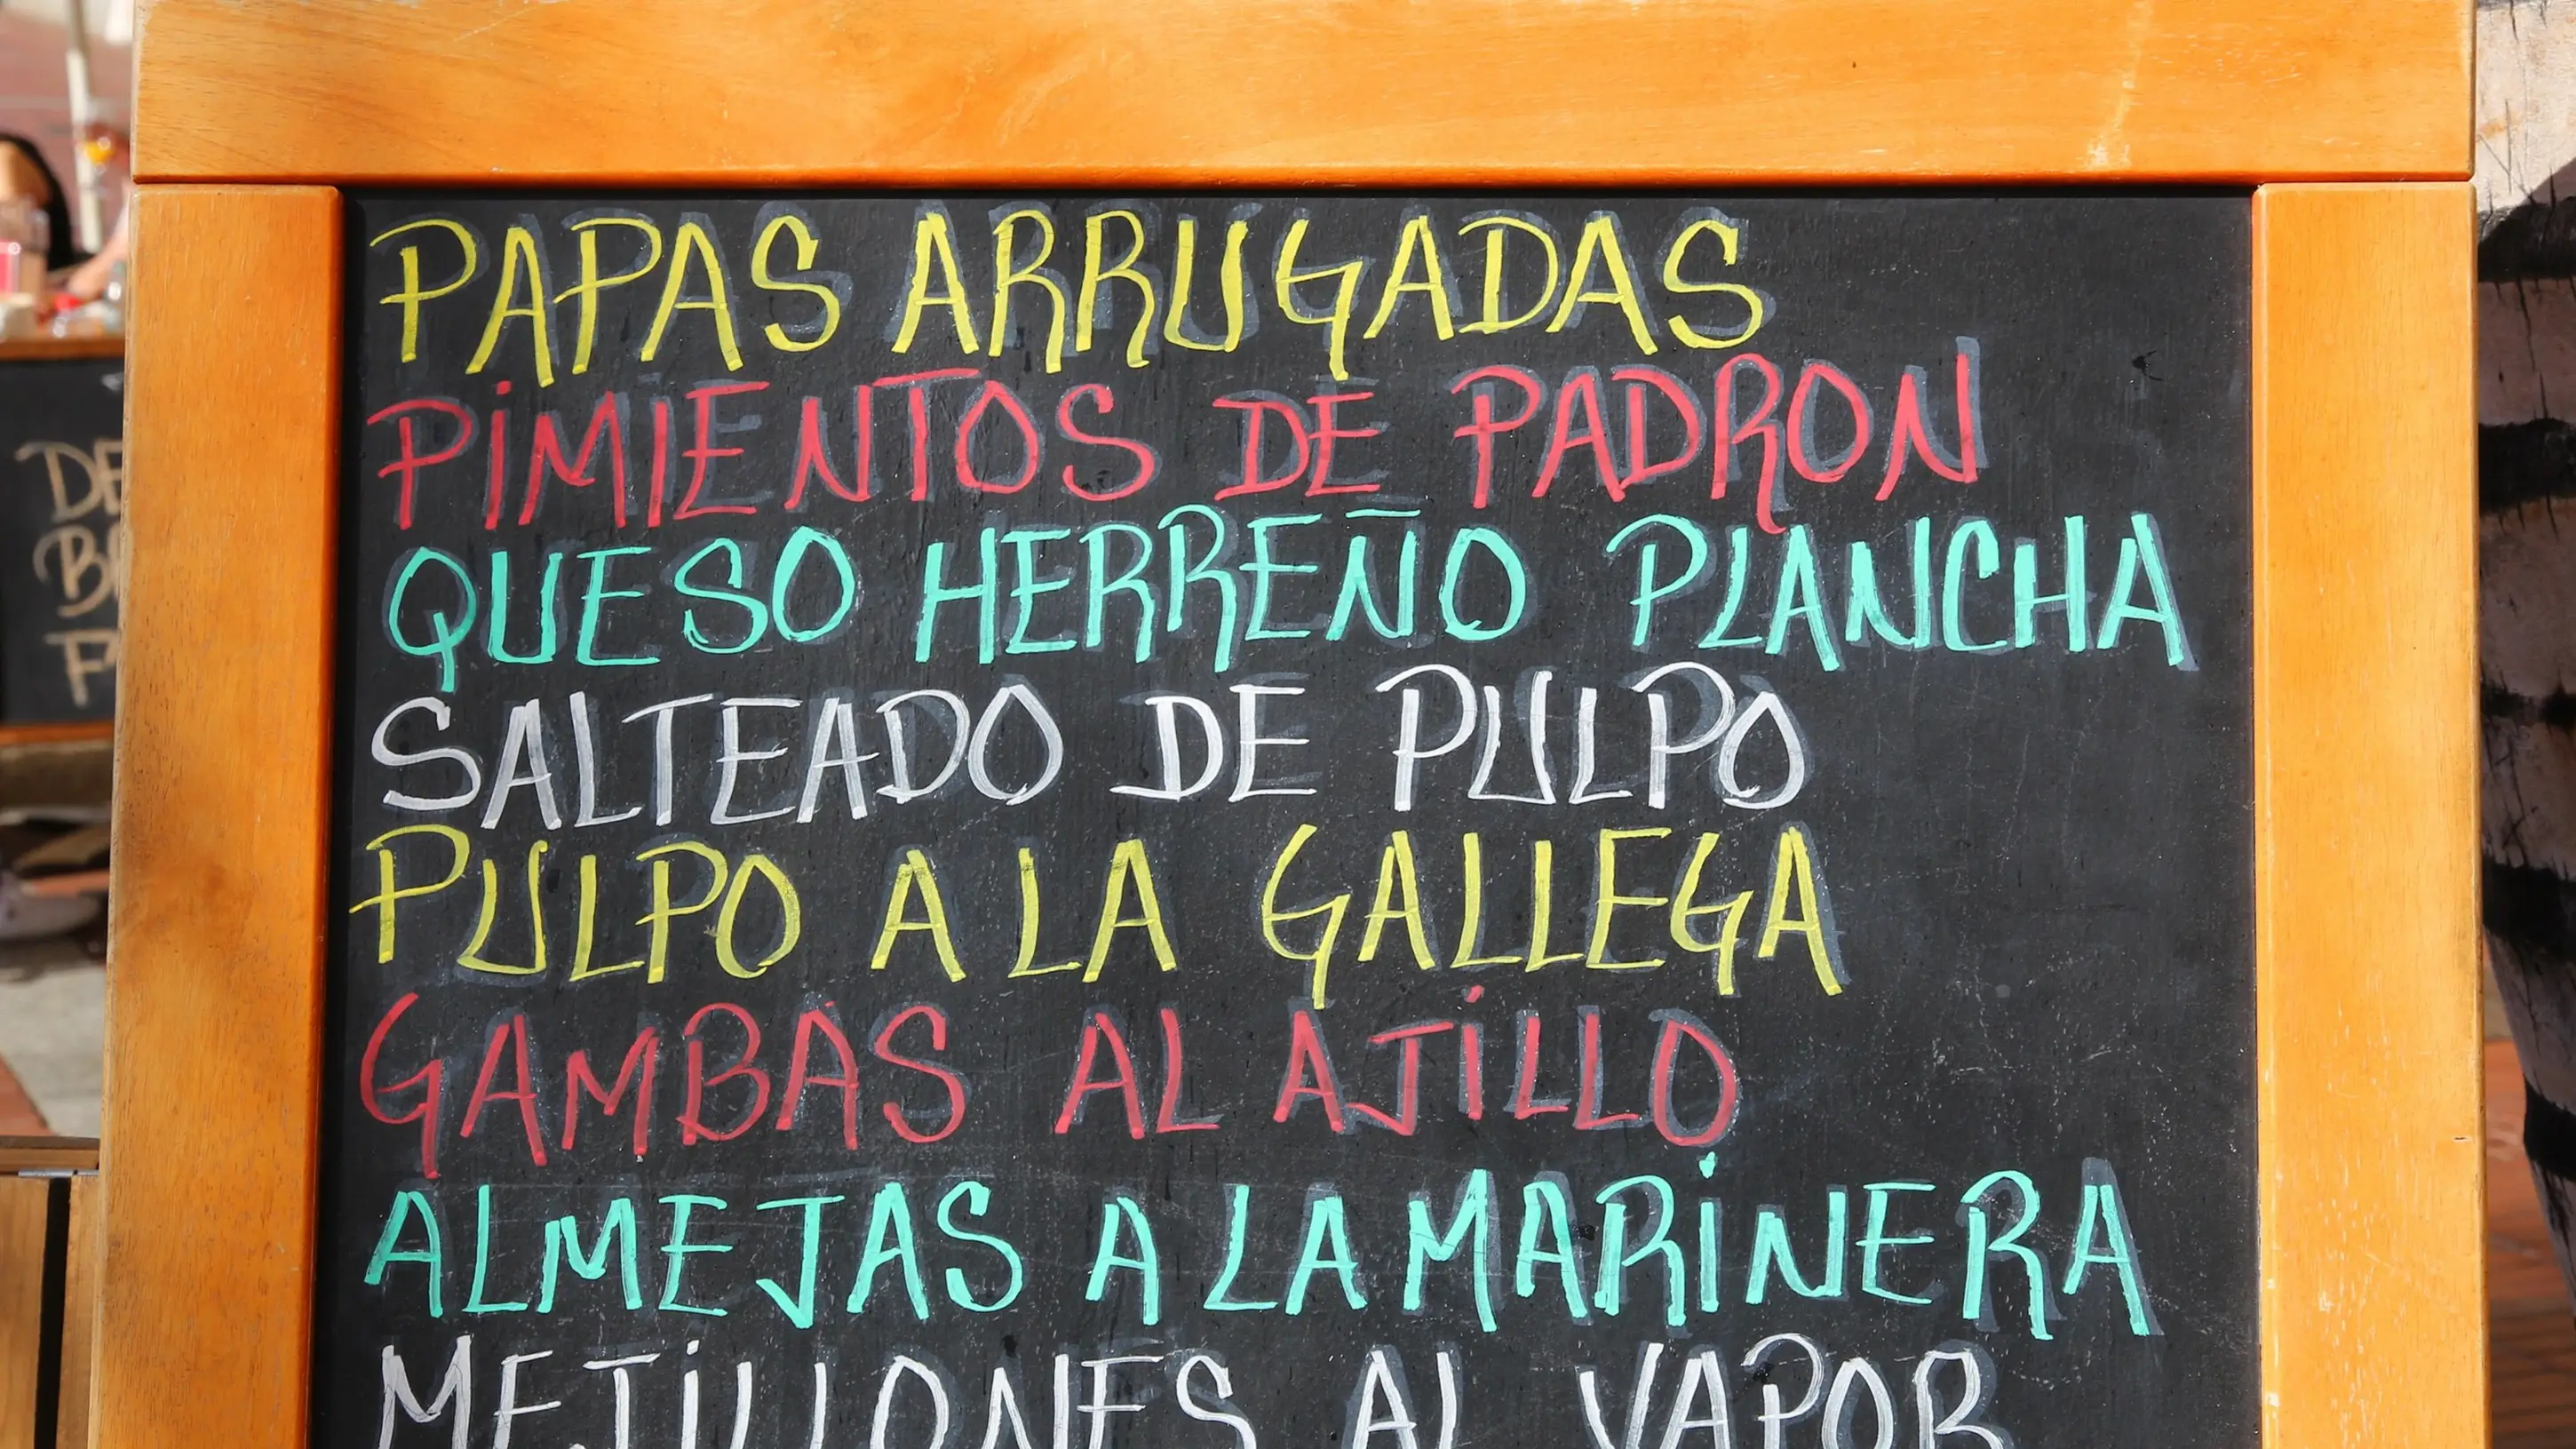 PAPAS ARRUGADAS
PIMIENTOS DE PADRON
QUESO HERREÑO PLANCHA
SALTEADO DE PULPO
PULPO A LA GALLEGA
GAMBAS AL AJILLO
ALMEJAS A LA MARINERA
MEJILLONES AL VAPOR